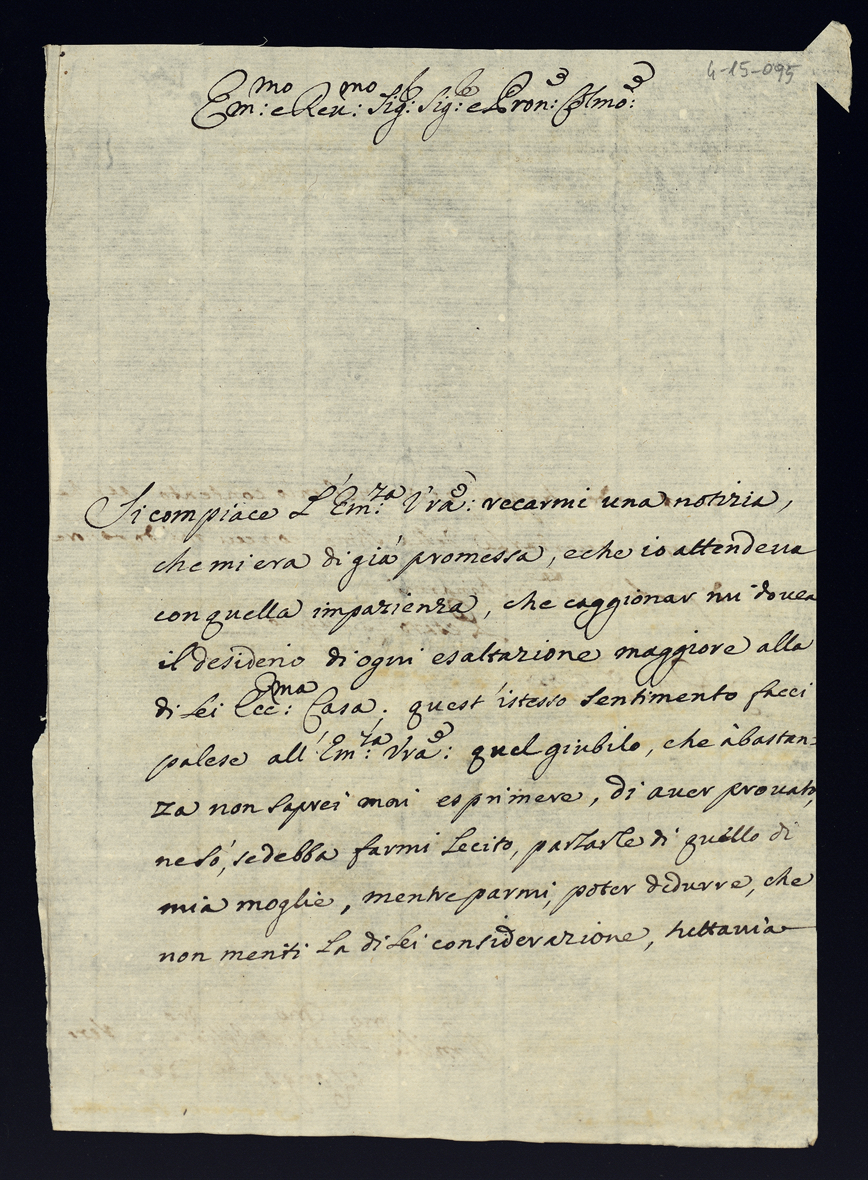 4-15-095
Em:mo e Reu:mo Sig:r Sig:r e Pron:e Colmo:
Si compiace L'Em:za Vra: recarmi una notizia,
che mi era di già promessa, e che io attendeua
con quella impazienza, che caggionar mi douea
il desiderio di ogni esaltazione maggiore alla
di Lei Ecc:ma Casa; quest'istesso sentimento facci
palese all'Em:za Vra: quel giubilo, che àbastan:
za non saprei mai esprimere, di auer prouato,
ne só, se debba farmi Lecito, parlarLe di quello di
mia moglie, mentre parmi, poter dedurre, che
non meriti La di Lei considerazione, tuttauia